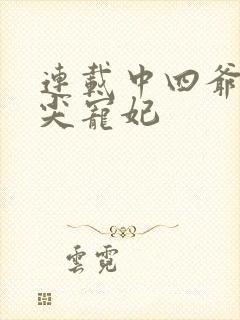 連載中四爺
尖寵妃
雲霓